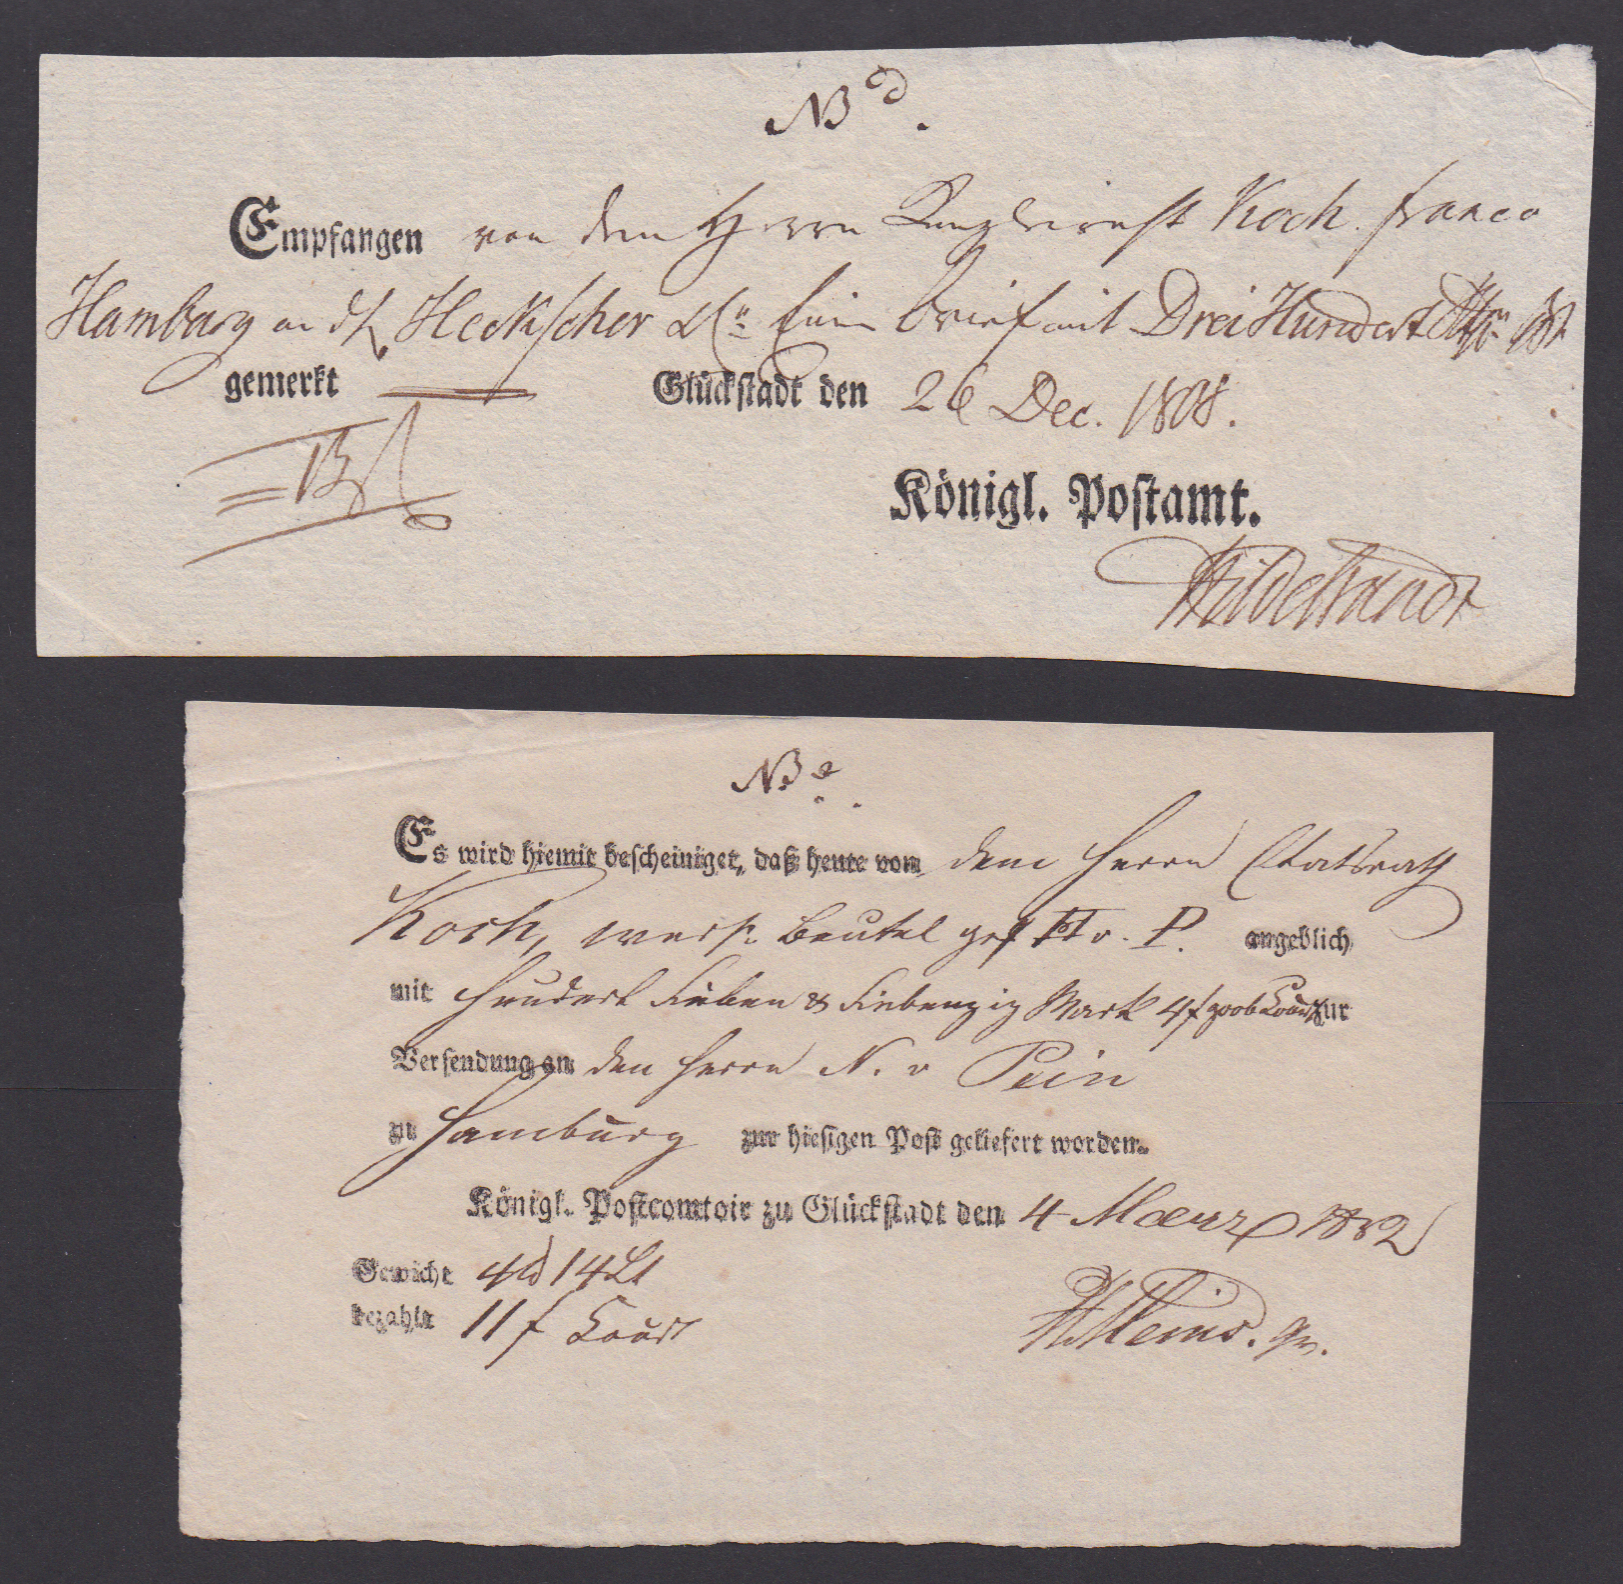 NB d.
Empfangen von dem Herrn Kanzleirath Koch franco
Hamburg an d H. Heckscher & Co. Einen Brief mit Drei Hundert
gemerkt Glückstadt den 26 Dec. 1808.
Königl. Postamt.
Hildebrandt
NB. e.
Es wird hiemit bescheiniget, daß heute von dem Herrn Etatsrath
Koch, Beutel gez. H v. P. angeblich
mit Hundert Sieben & Siebenzig Mark 4 ß grob Court zur
Versendung an den Herrn N. v Pein
zu Hamburg zur hiesigen Post geliefert worden.
Königl. Postcomtoir zu Glückstadt den 4 Maerz 1832
Gewicht 4 14 Lt
bezahlt 11 ß Court